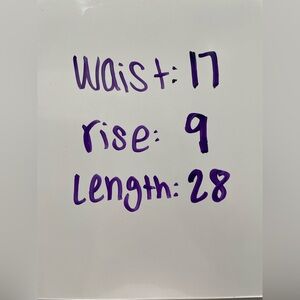 Waist: 17
rise: 9
Length: 28